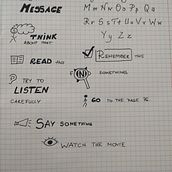 Message
Mm Nn Oo Pp Qq
Rr Ss Tt Uu Vv Ww
Yy Zz
Think
about that
Remember this
Read and
Find something
try to
Listen
carefully
Go to the page 76
Say something
watch the movie